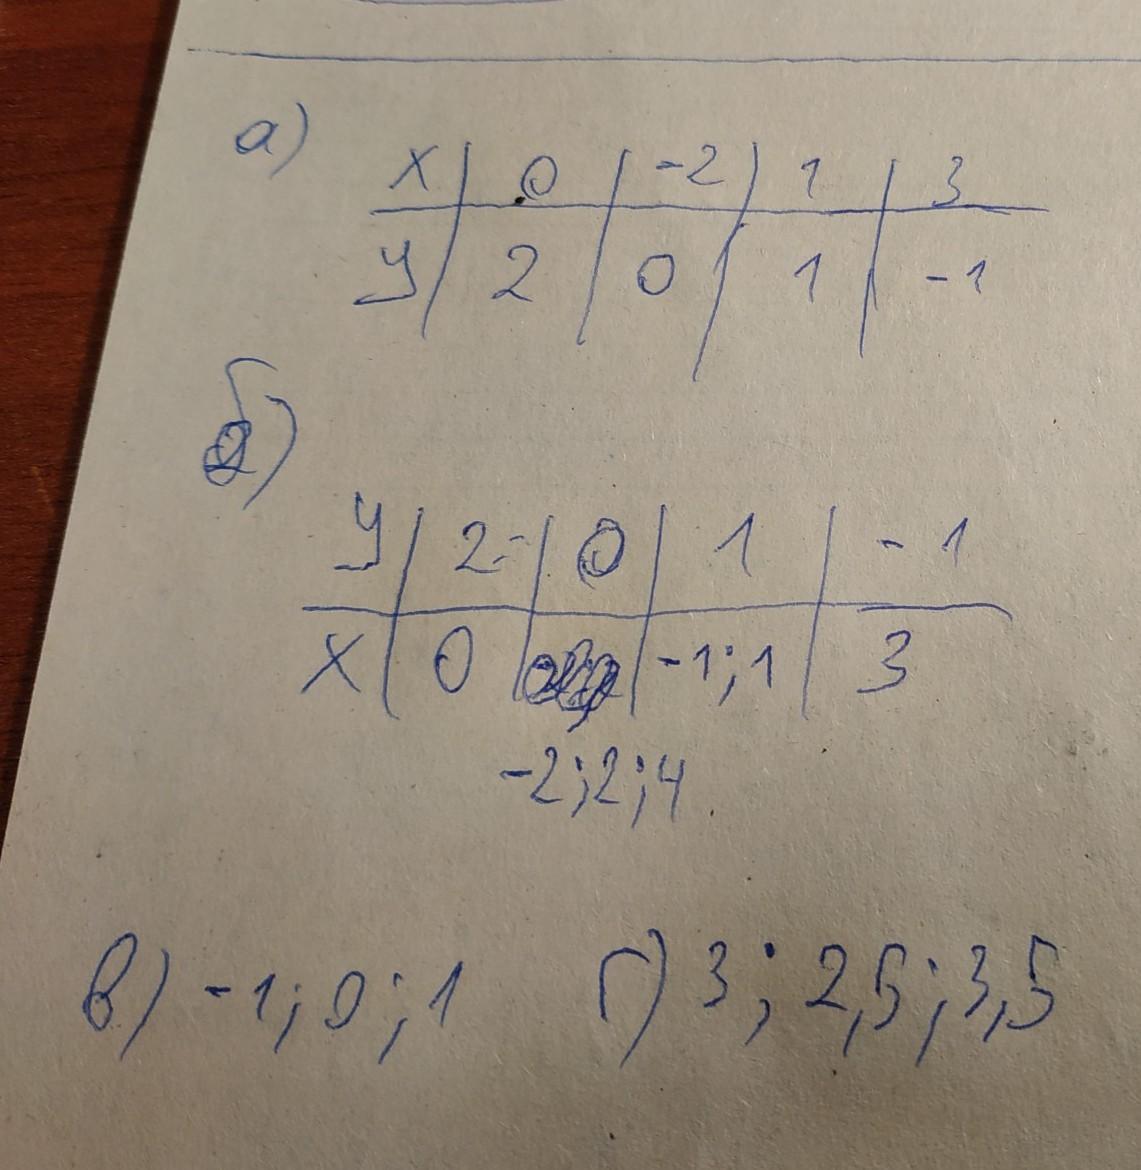 а)
х | 0 | -2 | 1 | 3
у | 2 | 0 | 1 | -1
б)
у | 2 | 0 | 1 | -1
х | 0 | | -1;1 | 3
-2;2;4
в) -1;0;1 г) 3; 2,5; 3,5